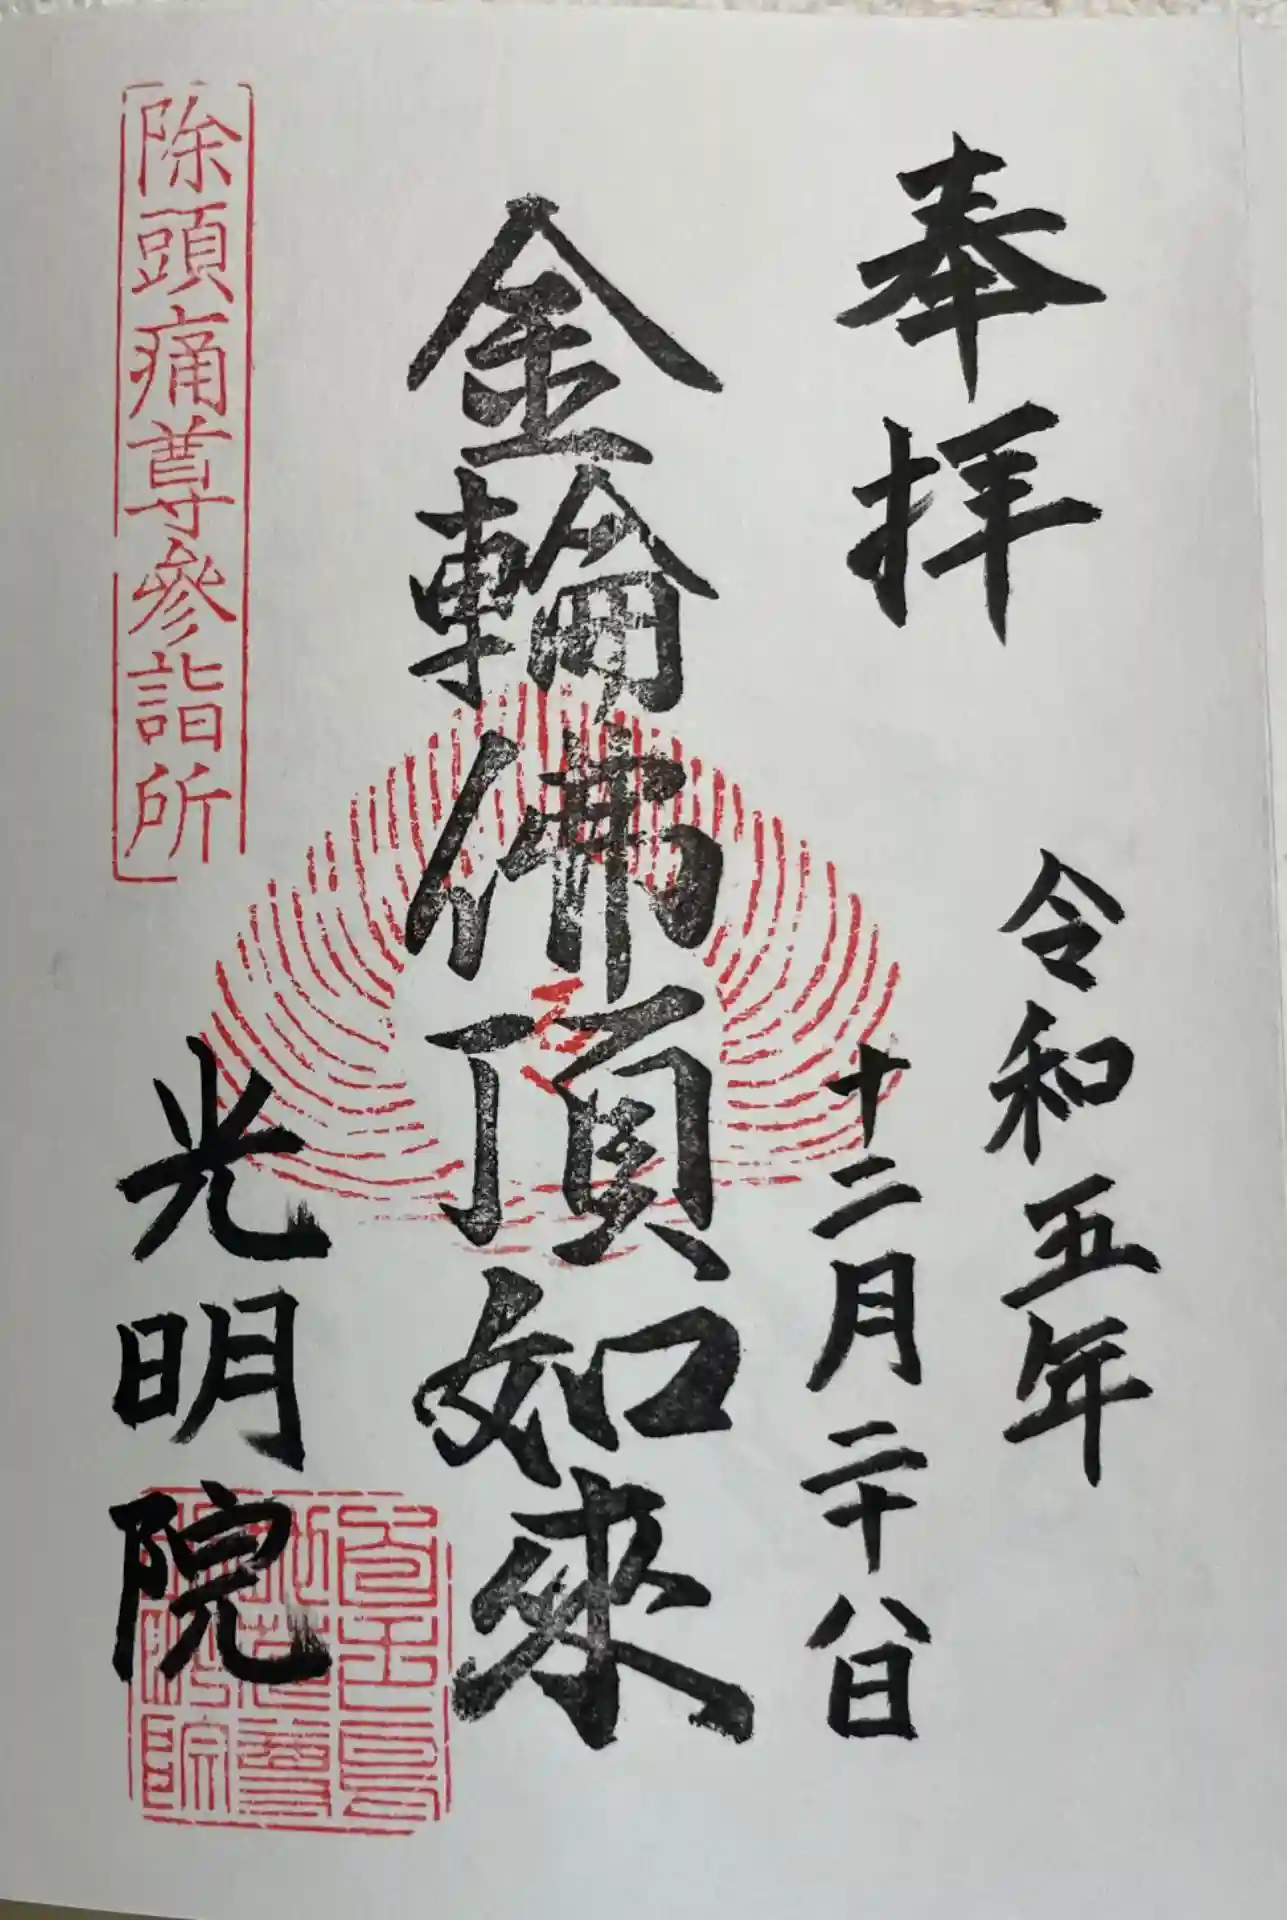 奉拝
令和五年
十二月二十八日
金輪佛頂如來
除頭痛尊参詣所
光明院